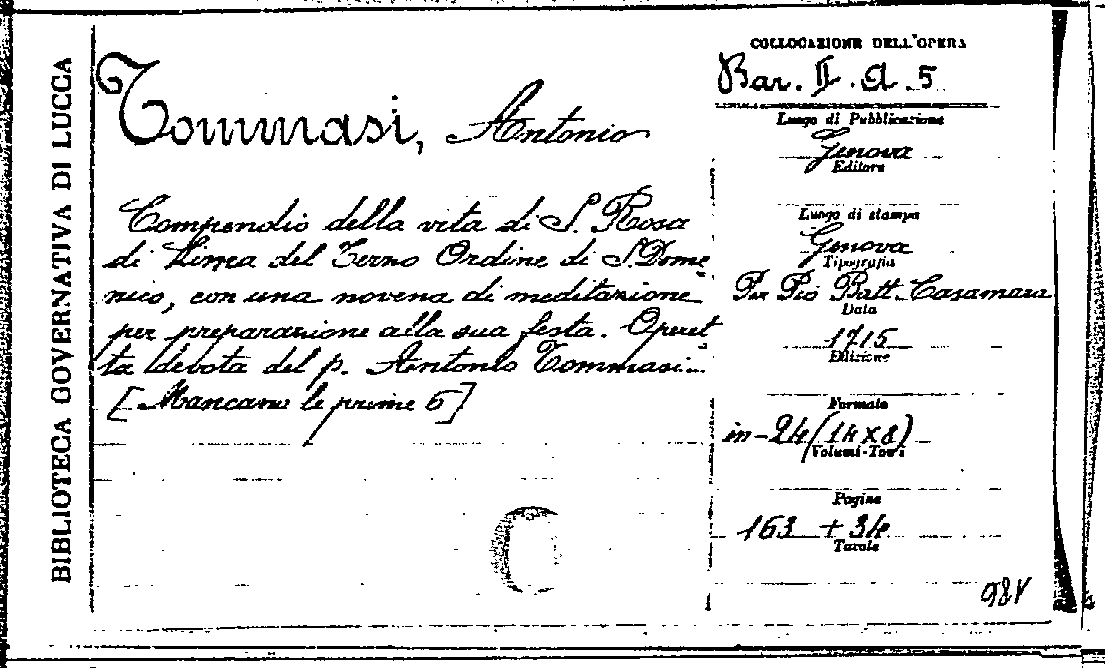 BIBLIOTECA GOVERNATIVA DI LUCCA
Tommasi, Antonio
Compendio della vita di S. Rosa
di Lima del Terzo Ordine di S. Dome-
nico, con una novena di meditazione
per preparazione alla sua festa. Operet-
ta devota del p. Antonio Tommasi...
[Mancano le prime 6]
COLLOCAZIONE DELL'OPERA
Bar. II. A. 5
Luogo di Pubblicazione
Genova
Editore
Luogo di stampa
Genova
Tipografia
Per Pio Batt. Casamara
Data
1715
Edizione
Formato
in-24 (14x8)
Volumi-Tomi
Pagine
163 + 34
Tavole